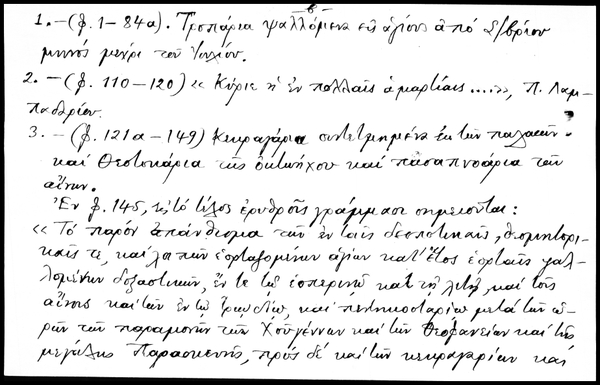 -β-
1.-(φ. 1-84α). Τροπάρια ψαλλόμενα εἰς ἁγίους ἀπό Σ/βρίου
μηνός μέχρι τοῦ Ἰουλίου.
2.-(φ. 110-120) «Κύριε ἡ ἐν πολλαῖς ἁμαρτίαις.....», Π. Λαμ-
παδαρίου.
3.-(φ. 121α-149) Κεκραγάρια συντετμημένα ἐκ τῶν παλαιῶν
καί Θεοτοκάρια τῆς ὀκτωήχου καί πασαπνοάρια τῶν
αἴνων.
Ἐν φ. 145, εἰς τό τέλος ἐρυθροῖς γράμμασι σημειοῦται:
«Τό παρόν ἀπάνθισμα τῶν ἐν ταῖς δεσποτικαῖς, θεομητορι-
καῖς τε, καί λοιπῶν ἑορταζομένων ἁγίων κατ' ἔτος ἑορταῖς ψαλ-
λομένων δοξαστικῶν, ἔν τε τῷ ἑσπερινῷ καί τῇ λιτῇ, καί τοῖς
αἴνοις καί τῶν ἐν τῷ τριῳδίῳ, καί πεντηκοσταρίῳ μετά τῶν ὡ-
ρῶν τῶν παραμονῶν τῶν Χούγεννων καί τῶν Θεοφανείων καί τῆς
μεγάλης Παρασκευῆς, πρός δέ καί τῶν κεκραγαρίων καί